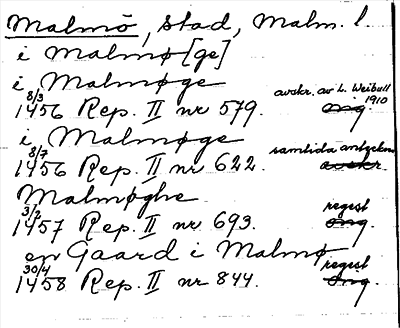 Malmö, stad, Malm. l.
i Malmø[ge]
i Malmøge
8/3 1456 Rep. II nr 579. avskr. av L. Weibull 1910 orig.
i Malmøge
8/7 1456 Rep. II nr 622. samtida anteckn. avskr.
Malmøghe
3/2 1457 Rep. II nr 693. regest orig.
en Gaard i Malmø
30/4 1458 Rep. II nr 844. regest orig.